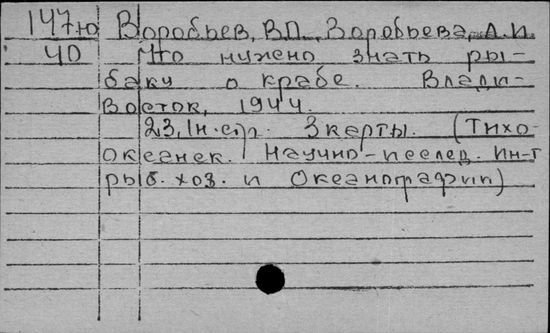 147ю Воробьев, В.П., Воробьева, А.И.
40 Что нужно знать ры-
баку о крабе. Влади-
восток, 1944.
23, 1н.с. 3 карты. (Тихо
океанск. Научно-исслед. Ин-т
рыб. хоз. и Океанографии)